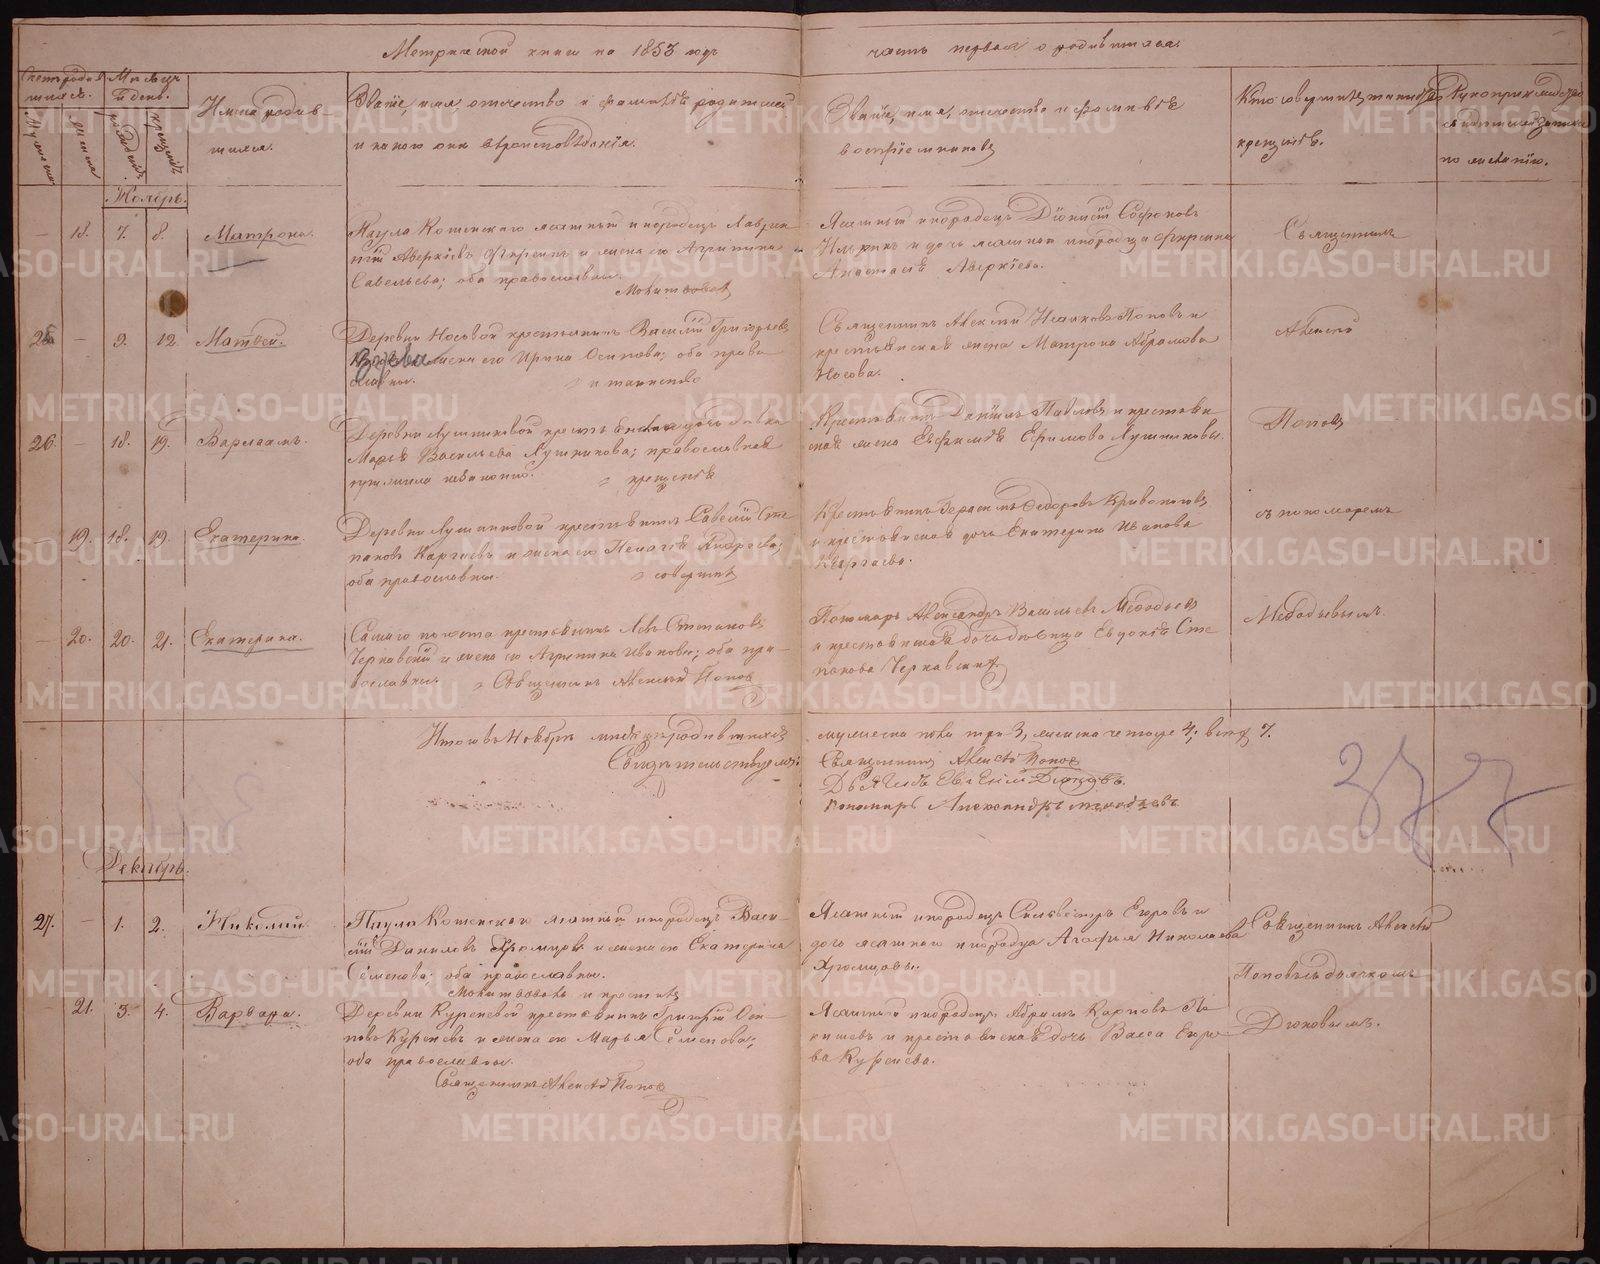 Метрической книги на 1853 годъ часть первая о родившихся.
Счетъ родив
шихся.
Мѣсяцъ
и день.
Мужеска
женска
рожденія
крещенія
Имена родив
шихся.
Званіе, имя, отчество и фамилія родителей
и какого они вѣроисповѣданія.
Званіе, имя, отчество и фамилія
воспріемниковъ
Кто совершалъ таинство
крещенія.
Рукоприкладство
свидѣтелей записи
по желанію.
Ноябрь.
18. 7. 8. Матрона.
Паула Кошенскаго ясашный инородецъ Лаврен
тій Аверкіевъ и жена его Агрипина
Савельева; оба православны.
Молитвовалъ
Ясашный инородецъ Діонисій Софоновъ
и дочь ясашнаго инородца
Анастасія Аверкіева.
Священникъ
25 — 9. 12. Матвей.
Деревни Носовой крестьянинъ Василій Григорьевъ
Зуева жена его Ирина Осипова; оба право
славны. и таинство
Священникъ Алексій Исаковъ Поповъ и
крестьянская жена Матрона Абрамова
Носова.
Алексій
26 — 18. 19. Варлаамъ.
Деревни Лушниковой крестьянская дочь дѣвка
Марья Васильева Лушникова; православная
прижила незаконно. крещенія
Крестьянинъ Даніилъ Павловъ и крестьян
ская жена Евфимія Ефимова Лушниковы.
Поповъ
— 19. 18. 19. Екатерина.
Деревни Лушниковой крестьянинъ Савелій Сте
пановъ Каргаевъ и жена его Пелагія Андреева;
оба православны. совершилъ
Крестьянинъ Герасимъ Федоровъ Кривоноговъ
и крестьянская дочь Екатерина Иванова
Каргаева.
съ пономаремъ
20. 20. 21. Екатерина.
Самаго погоста крестьянинъ Левъ Степановъ
Чернавскій и жена его Агрипина Иванова; оба пра
вославны. Священникъ Алексій Поповъ
Пономарь Александръ Васильевъ Меѳодьевъ
и крестьянская дочь дѣвица Евдокія Сте
панова Чернавская.
Меѳодьевымъ.
Итого въ Ноябрѣ мѣсяцѣ родившихся мужеска пола три 3, женска четыре 4; всего 7.
Свидѣтельствуемъ: Священникъ Алексѣй Поповъ
Дьячекъ Евгеній Дюковъ.
Пономарь Александръ Меѳодьевъ
377
Декабрь.
27. — 1. 2. Николай.
Паула Кошенскаго ясашный инородецъ Васи-
лій Даниловъ Хромцовъ и жена его Екатерина
Семенова; оба православны.
Молитвовалъ и крестилъ
Ясашный инородецъ Сильвестръ Егоровъ и
дочь ясашнаго инородца Агафья Николаева
Хромцовы.
Священникъ Алексѣй
Поповъ съ дьячкомъ
— 21. 3. 4. Варвара.
Деревни Куреневой крестьянинъ Григорій Оси
повъ Куреневъ и жена его Марья Семенова;
оба православны.
Священникъ Алексій Поповъ
Ясашный инородецъ Абрамъ Карповъ
и крестьянская дочь Васса Егоро
ва Куренева.
Дюковымъ.
METRIKI.GASO-URAL.RU